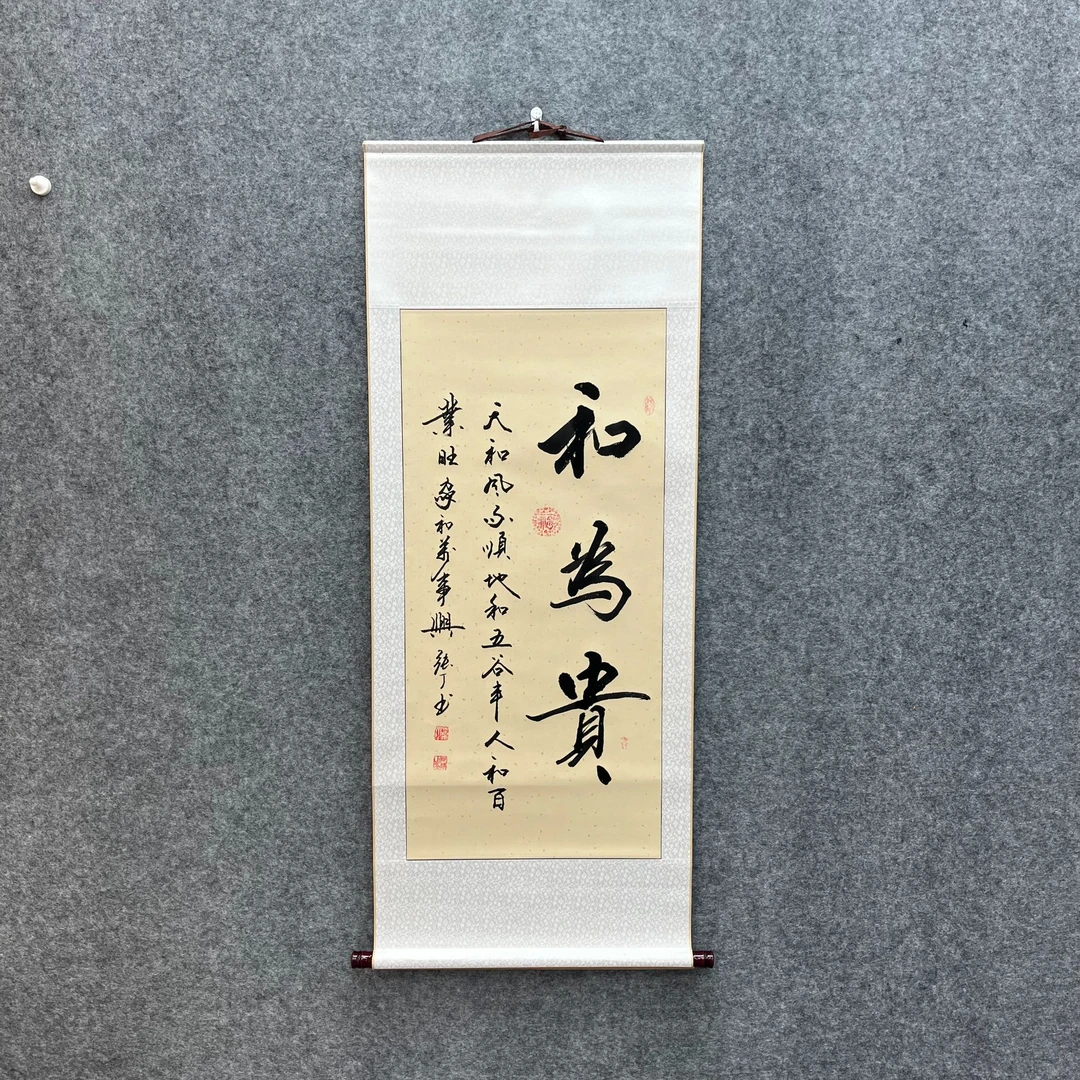 和為貴
天和風雨順地和五谷丰人和百
業旺家和萬事興張丁书